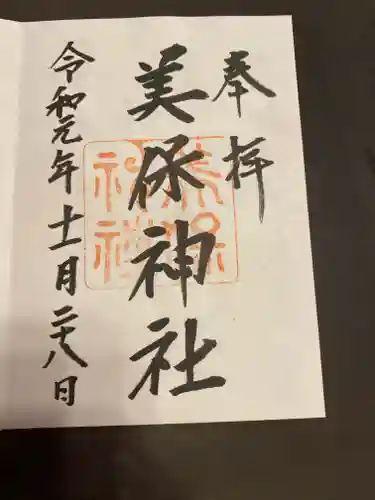 奉拝
美保神社
令和元年十一月二十八日